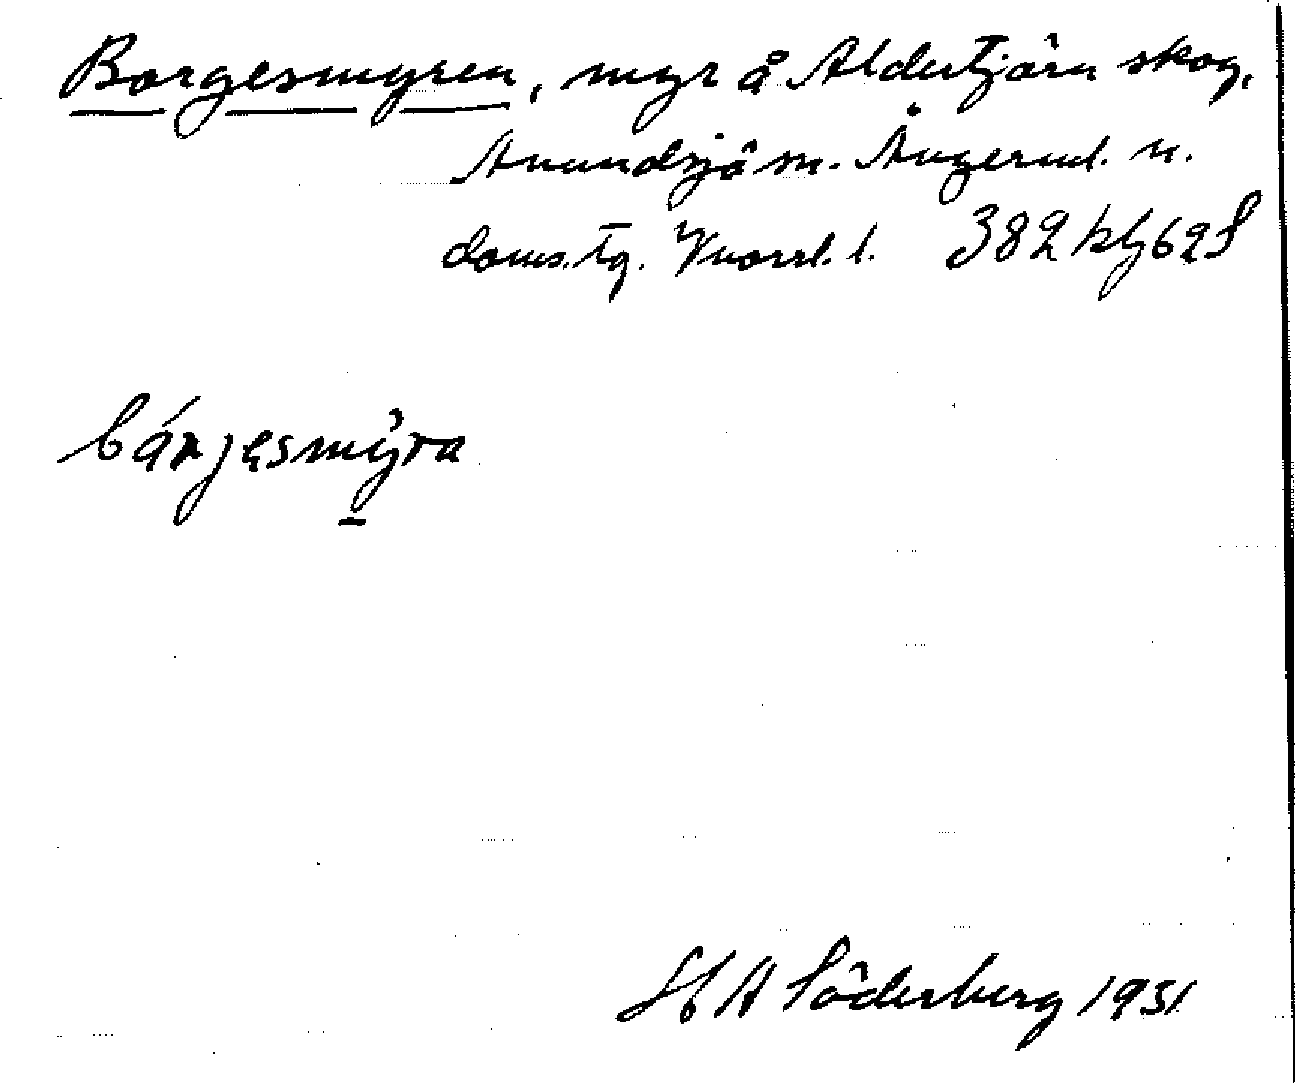 Borgesmyren, myr å Aldertjärn skog,
Anundsjö sn. Ångerml. n.
doms.tg. Vnorrl. l. 382 klj 62 S
bárjesmỳra
H A Söderberg 1931